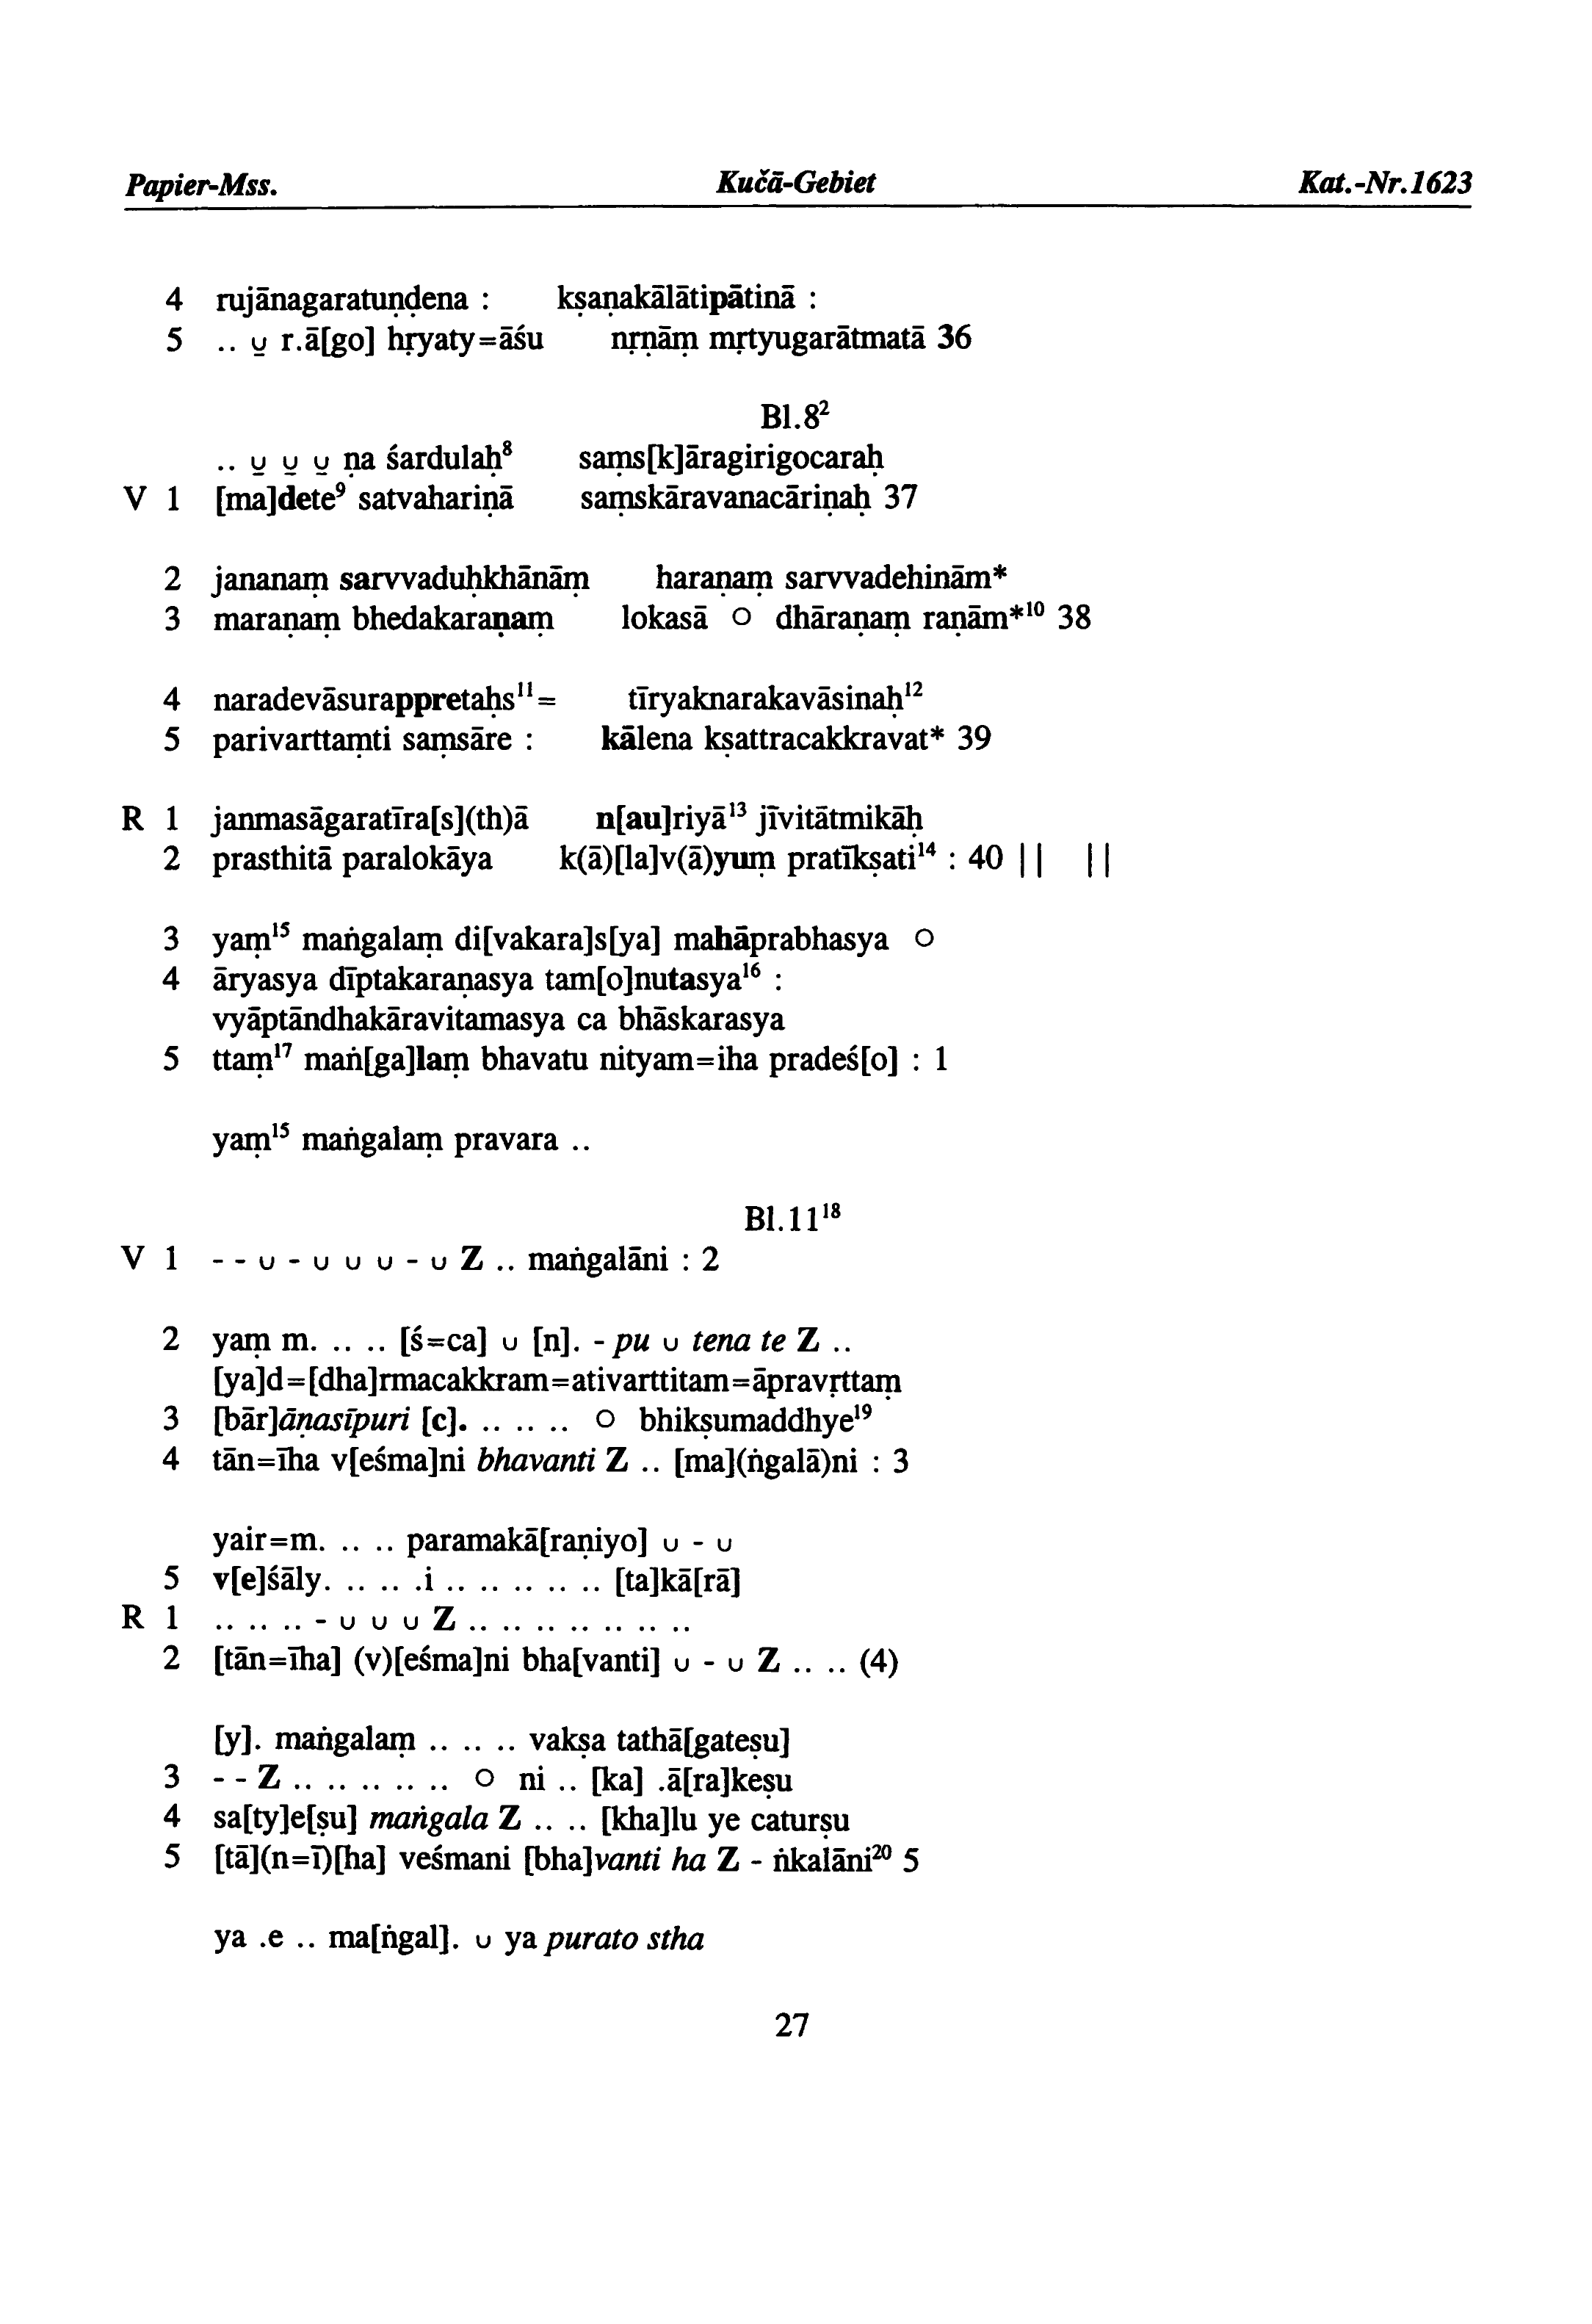 Papier-Mss. Kučā-Gebiet Kat.-Nr.1623
4 rujānagaratuṇḍena : kṣaṇakālātipātinā :
5 .. ⏓ r.ā[go] hṛyaty=āśu nṛṇāṃ mṛtyugarātmatā 36
Bl.8²
.. ⏓ ⏓ ⏓ ṇa śardulaḥ⁸ saṃs[k]āragirigocaraḥ
V 1 [ma]dete⁹ satvahariṇā saṃskāravanacāriṇaḥ 37
2 jananaṃ sarvvaduḥkhānāṃ haraṇaṃ sarvvadehinām*
3 maraṇaṃ bhedakaraṇaṃ lokasā ○ dhāraṇaṃ raṇām*¹⁰ 38
4 naradevāsurappretaḥs¹¹= tīryaknarakavāsinaḥ¹²
5 parivarttaṃti saṃsāre : kālena kṣattracakkravat* 39
R 1 janmasāgaratīra[s](th)ā n[au]riyā¹³ jīvitātmikāḥ
2 prasthitā paralokāya k(ā)[la]v(ā)yuṃ pratīkṣati¹⁴ : 40 || ||
3 yaṃ¹⁵ maṅgalaṃ di[vakara]s[ya] mahāprabhasya ○
4 āryasya dīptakaraṇasya tam[o]nutasya¹⁶ :
vyāptāndhakāravitamasya ca bhāskarasya
5 ttaṃ¹⁷ maṅ[ga]laṃ bhavatu nityam=iha pradeś[o] : 1
yaṃ¹⁵ maṅgalaṃ pravara ..
Bl.11¹⁸
V 1 - - ∪ - ∪ ∪ ∪ - ∪ Z .. maṅgalāni : 2
2 yaṃ m. .. .. [ś=ca] ∪ [n]. - pu ∪ tena te Z ..
[ya]d=[dha]rmacakkram=ativarttitam=āpravṛttaṃ
3 [bār]āṇasīpuri [c]. .. .. .. ○ bhikṣumaddhye¹⁹
4 tān=īha v[eśma]ni bhavanti Z .. [ma](ṅgalā)ni : 3
yair=m. .. .. paramakā[raṇiyo] ∪ - ∪
5 v[e]śāly. .. .. .i .. .. .. .. .. [ta]kā[rā]
R 1 .. .. .. - ∪ ∪ ∪ Z .. .. .. .. .. .. ..
2 [tān=īha] (v)[eśma]ni bha[vanti] ∪ - ∪ Z .. .. (4)
[y]. maṅgalaṃ .. .. .. vakṣa tathā[gateṣu]
3 - - Z .. .. .. .. .. ○ ni .. [ka] .ā[ra]keṣu
4 sa[ty]e[ṣu] maṅgala Z .. .. [kha]lu ye caturṣu
5 [tā](n=ī)[ha] veśmani [bha]vanti ha Z - ṅkalāni²⁰ 5
ya .e .. ma[ṅgal]. ∪ ya purato stha
27